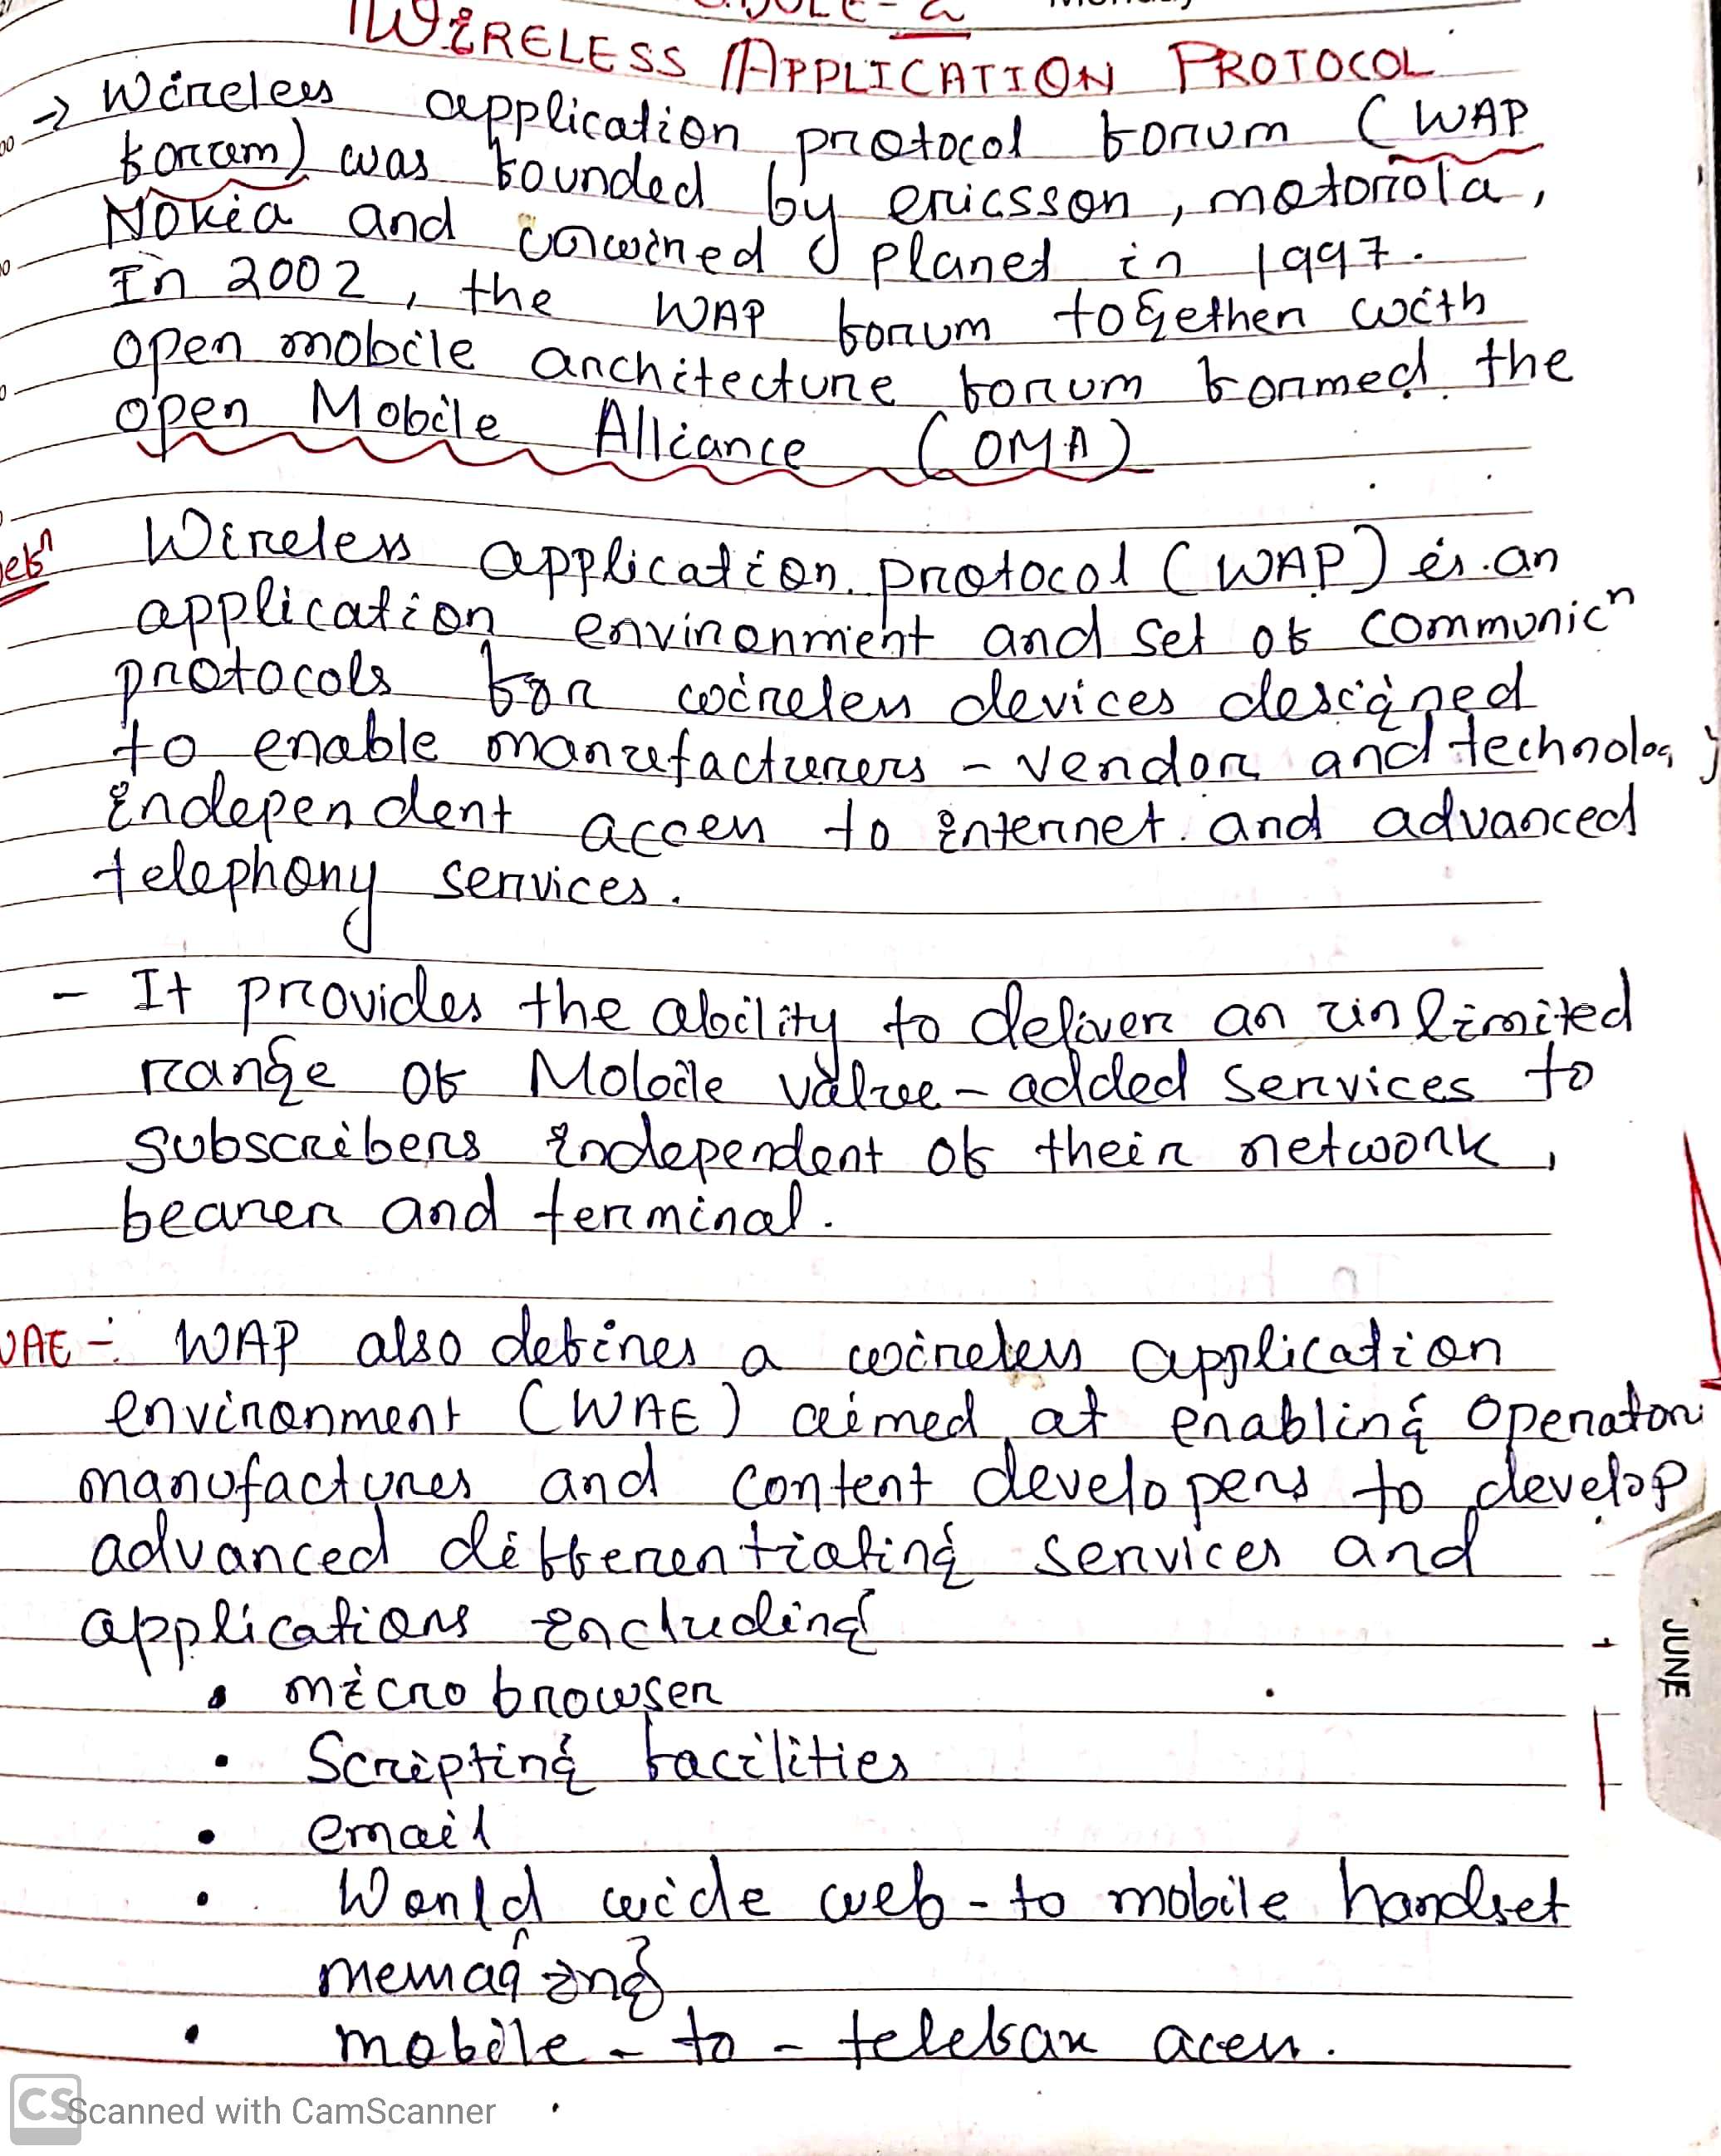 WIRELESS APPLICATION PROTOCOL
→ Wireless application protocol forum (WAP
forum) was founded by ericsson, motorola,
Nokia and unwired planet in 1997.
In 2002, the WAP forum together with
open mobile architecture forum formed the
open Mobile Alliance (OMA)
Wireless application protocol (WAP) is an
application environment and set of communicⁿ
protocols for wireless devices designed
to enable manufacturers - vendor and technology
independent access to internet and advanced
telephony services.
- It provides the ability to deliver an unlimited
range of Mobile value-added services to
subscribers independent of their network,
bearer and terminal.
WAE - WAP also defines a wireless application
environment (WAE) aimed at enabling operator
manufactures and content developers to develop
advanced differentiating services and
applications including
• micro browser
• Scripting facilities
• email
• World wide web - to mobile handset
messaging
• mobile - to - telefax acess.
JUNE
CS Scanned with CamScanner